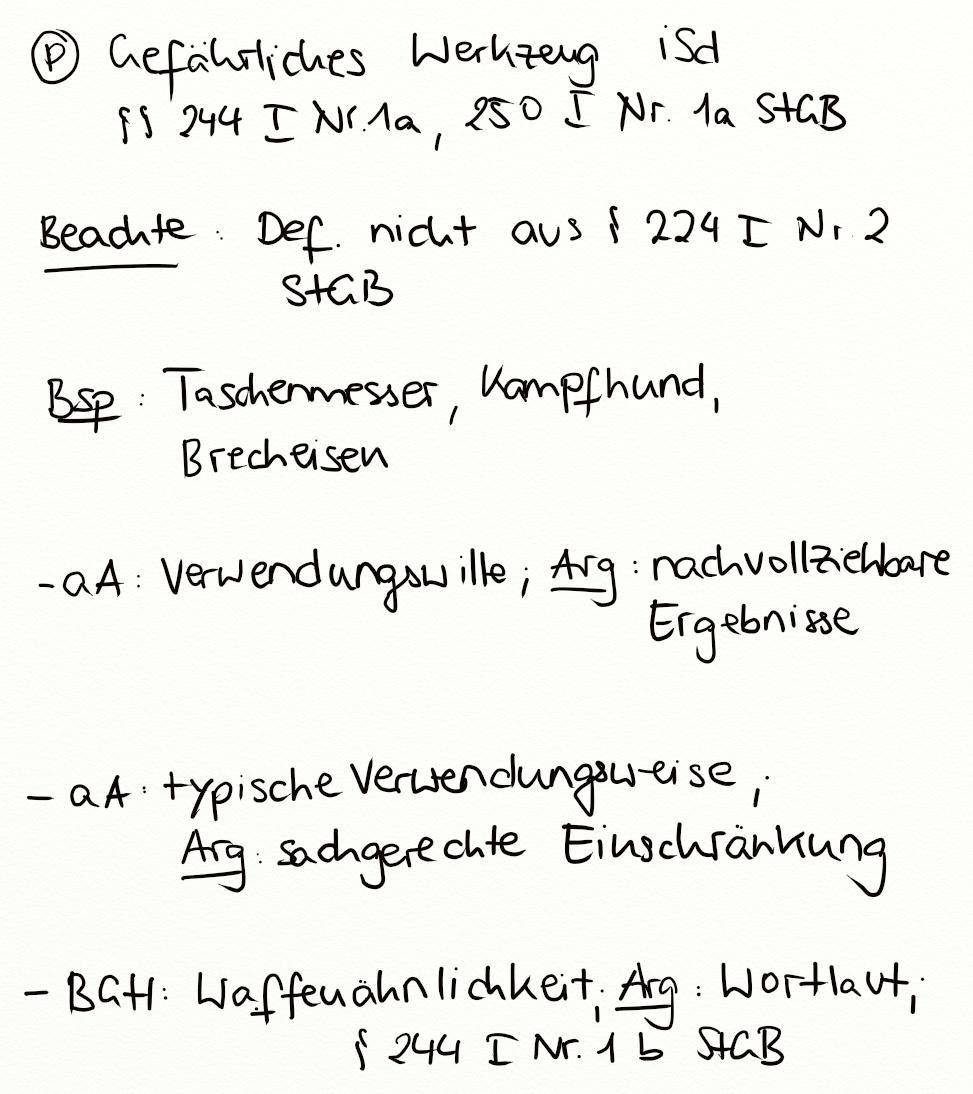 Ⓟ Gefährliches Werkzeug iSd
§§ 244 I Nr. 1a, 250 I Nr. 1a StGB
Beachte: Def. nicht aus § 224 I Nr. 2
StGB
Bsp: Taschenmesser, Kampfhund,
Brecheisen
- aA: Verwendungswille; Arg: nachvollziehbare
Ergebnisse
- aA: typische Verwendungsweise;
Arg: sachgerechte Einschränkung
- BGH: Waffenähnlichkeit; Arg: Wortlaut;
§ 244 I Nr. 1 b StGB